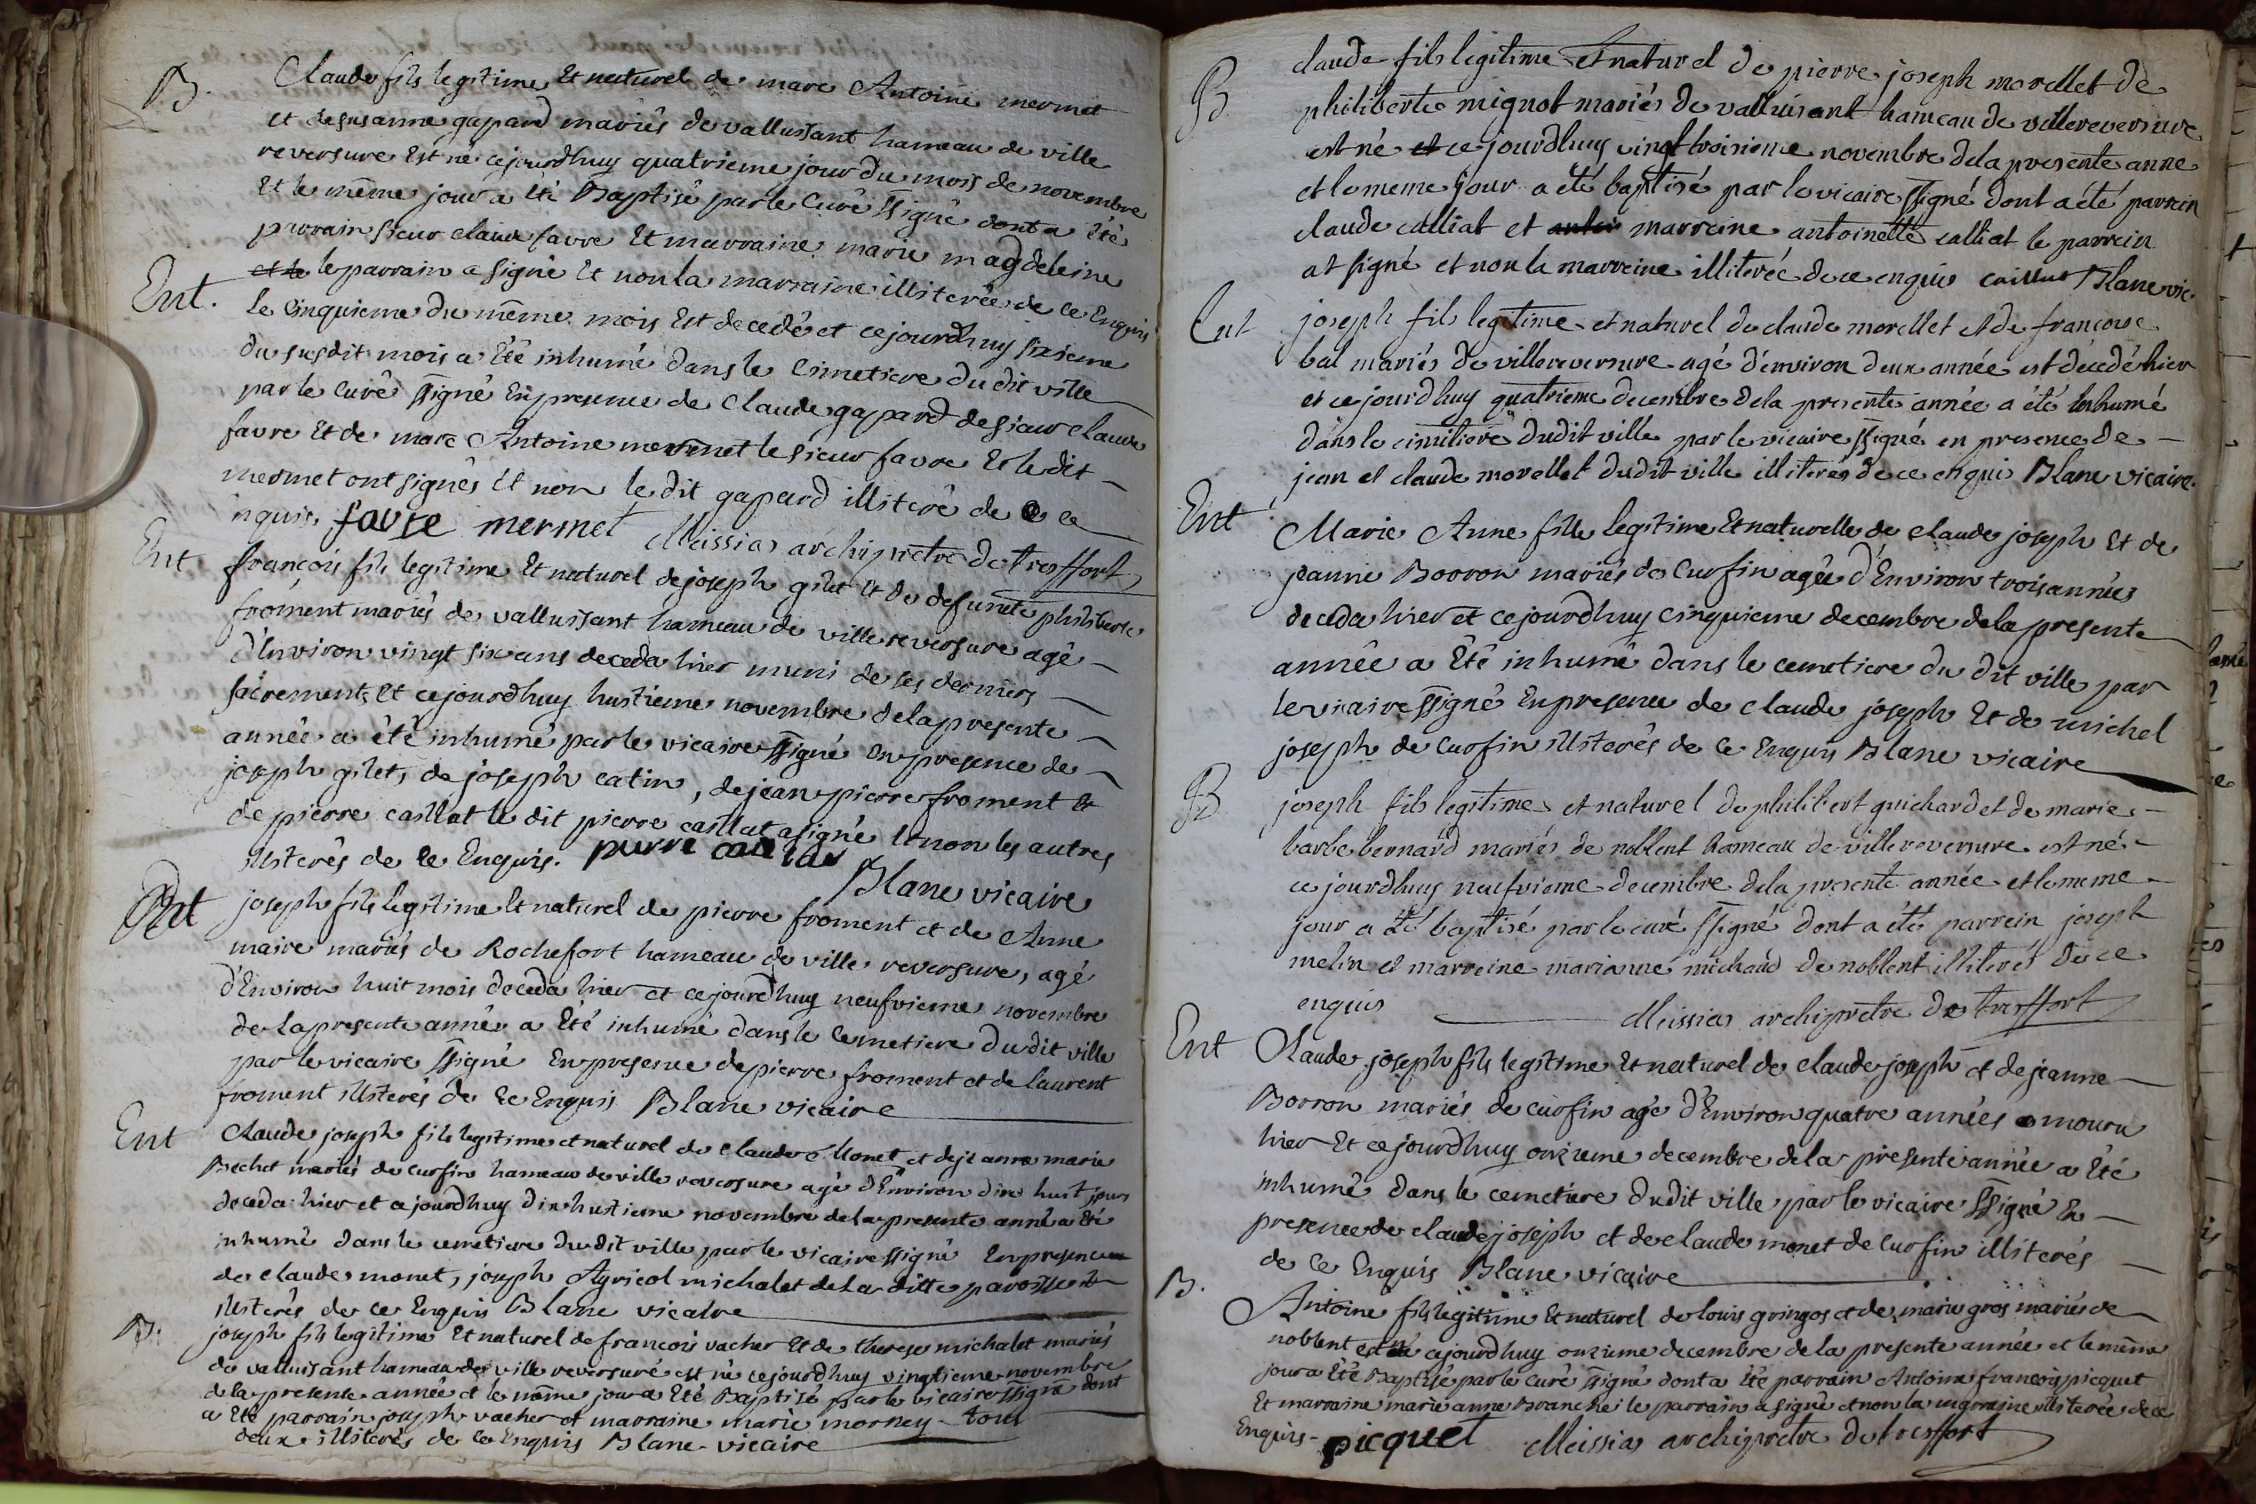 B.
Claude fils legitime Et naturel de marc Antoine mermet
et de susanne gapard mariés de vallussant hameau de ville
reversure Est né cejourdhuy quatrieme jour du mois de novembre
Et le même jour a été Baptisé par le Curé ssigné dont a été
parrain sieur claude favre Et marraine marie magdeleine
et le le parrain a signé Et non la marraine illiterée de ce Enquis
Ent.
Le Cinquieme du même mois Est decedé et cejourdhuy sixieme
du susdit mois a été inhumé dans le Cimetiere du dit ville
par le Curé ssigné En presence de Claude gapard de sieur claude
favre Et de marc Antoine mermet le sieur favre Et le dit
mermet ont signés Et non le dit gapard illiteré de ce
inquis. favre mermet Meissias archiprêtre de treffort
Ent
françois fils legitime Et naturel de joseph gilet Et de defunte philiberte
froment mariés de vallussant hameau de ville reversure agé
d'Environ vingt six ans deceda hier muni de ses derniers
sacrements Et cejourdhuy huitieme novembre de la presente
année a été inhumé par le vicaire ssigné En presence de
joseph gilet, de joseph catin, de jean pierre froment Et
de pierre caillat le dit pierre caillat a signé Et non les autres
illiterés de ce Enquis. pierre caillat
Blanc vicaire
Ent
joseph fils legitime Et naturel de pierre froment et de Anne
maire mariés de Rochefort hameau de ville reversure, agé
d'Environ huit mois deceda hier et cejourdhuy neufvieme novembre
de la presente année a Eté inhumé dans le Cemetiere dudit ville
par le vicaire ssigné En presence de pierre froment et de laurent
froment illiterés de ce Enquis Blanc vicaire
Ent
Claude joseph fils legitime et naturel de claude Monet et de jeanne marie
Bechet mariés de Curfin hameau de ville reversure agé d'Environ dix huit jours
deceda hier et cejourdhuy dix huitieme novembre de la presente année a Eté
inhumé dans le cemetiere dudit ville par le vicaire ssigné En presence
de claude monet, joseph Agricol michalet de la ditte paroisse
illiterés de ce Enquis Blanc vicaire
B.
joseph fils legitime Et naturel de françois vacher Et de therese michalet mariés
de valluisant hameau de ville reversure est né cejourdhuy vingtieme novembre
de la presente année et le même jour a Eté Baptisé par le vicaire ssigné dont
a Eté parrain joseph vacher et marraine marie morney tous
deux illiterés de ce Enquis Blanc vicaire
B
claude fils legitime et naturel de pierre joseph morellet de
philiberte mignot mariés de valluisant hameau de villereversure
est né et ce jourdhuy vingt troisieme novembre de la presente année
et le meme jour a été baptisé par le vicaire ssigné dont a été parrein
claude calliat et marreine antoinette calliat le parrein
at signé et non la marreine illiterée de ce enquis caillat Blanc vic.
Ent
joseph fils legitime et naturel de claude morellet et de francoise
bal mariés de villereversure agé d'environ deux année est décedé hier
et ce jourdhuy quatrieme decembre de la presente année a été inhumé
dans le cimitiere dudit ville par le vicaire ssigné en presence de
jean et claude morellet dudit ville illiterés de ce enquis Blanc vicaire.
Ent
Marie Anne fille legitime Et naturelle de claude joseph Et de
jeanne Borron mariés de Curfin agée d'Environ trois années
deceda hier et cejourdhuy cinquieme decembre de la presente
année a Eté inhumé dans le cemetiere du dit ville par
le vicaire ssigné En presence de claude joseph Et de michel
joseph de Curfin illiterés de ce Enquis Blanc vicaire
B
joseph fils legitime et naturel de philibert guichard et de marie
barbe bernard mariés de noblent hameau de villereversure est né
ce jourdhuy neufvieme decembre de la presente année et le meme
jour a été baptisé par le curé ssigné dont a été parrein joseph
melin et marreine marianne michaud de noblent illiterés de ce
enquis Meissias archiprêtre de treffort
Ent
Claude joseph fils legitime Et naturel de claude joseph et de jeanne
Borron mariés de curfin agé d'Environ quatre années mouru
hier Et cejourdhuy onzieme decembre de la presente année a Eté
inhumé dans le cemetiere dudit ville par le vicaire ssigné En
presence de claude joseph et de claude monet de Curfin illiterés
de ce Enquis Blanc vicaire
B.
Antoine fils legitime Et naturel de louis gringos et de marie gros mariés de
noblent est né cejourdhuy onzieme decembre de la presente année et le même
jour a Eté Baptisé par le Curé ssigné dont a Eté parrain Antoine françois picquet
Et marraine marie anne Branche le parrain a signé et non la marraine illiterée de ce
Enquis. picquet Meissias archiprêtre de treffort